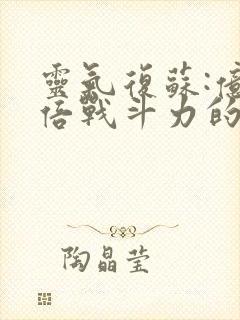 靈氣復蘇:億
倍戰斗力的
陶晶莹